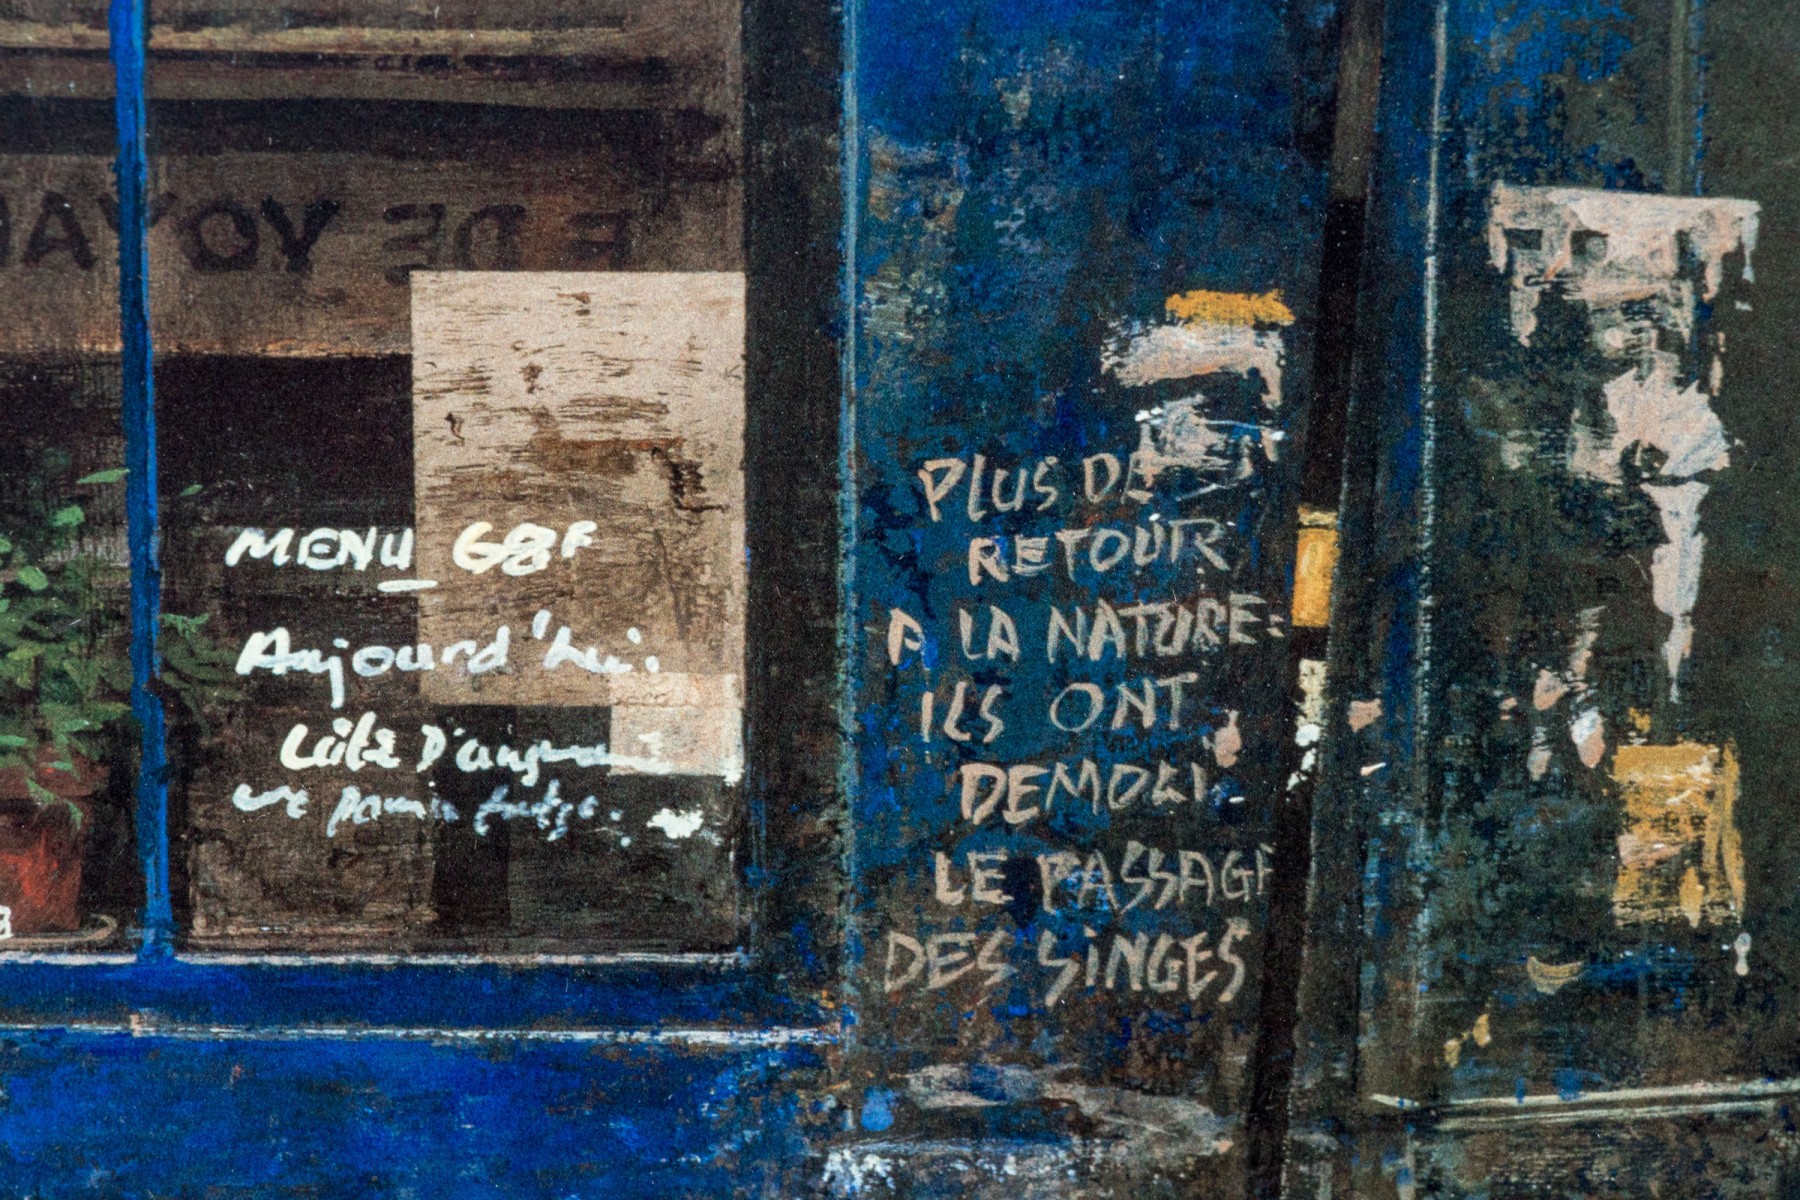 F DE VOYA
MENU 68F
Aujourd'hui:
Côte D'agneau
PLUS DE
RETOUR
A LA NATURE:
ILS ONT
DEMOLI
LE PASSAGE
DES SINGES